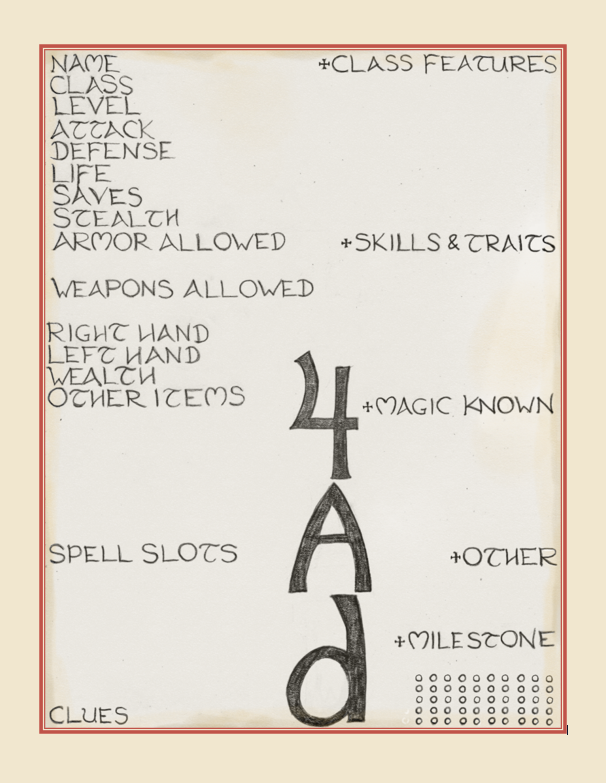 NAME
CLASS
LEVEL
ATTACK
DEFENSE
LIFE
SAVES
STEALTH
ARMOR ALLOWED
WEAPONS ALLOWED
RIGHT HAND
LEFT HAND
WEALTH
OTHER ITEMS
SPELL SLOTS
CLUES
4
A
d
+CLASS FEATURES
+SKILLS & TRAITS
+MAGIC KNOWN
+OTHER
+MILESTONE